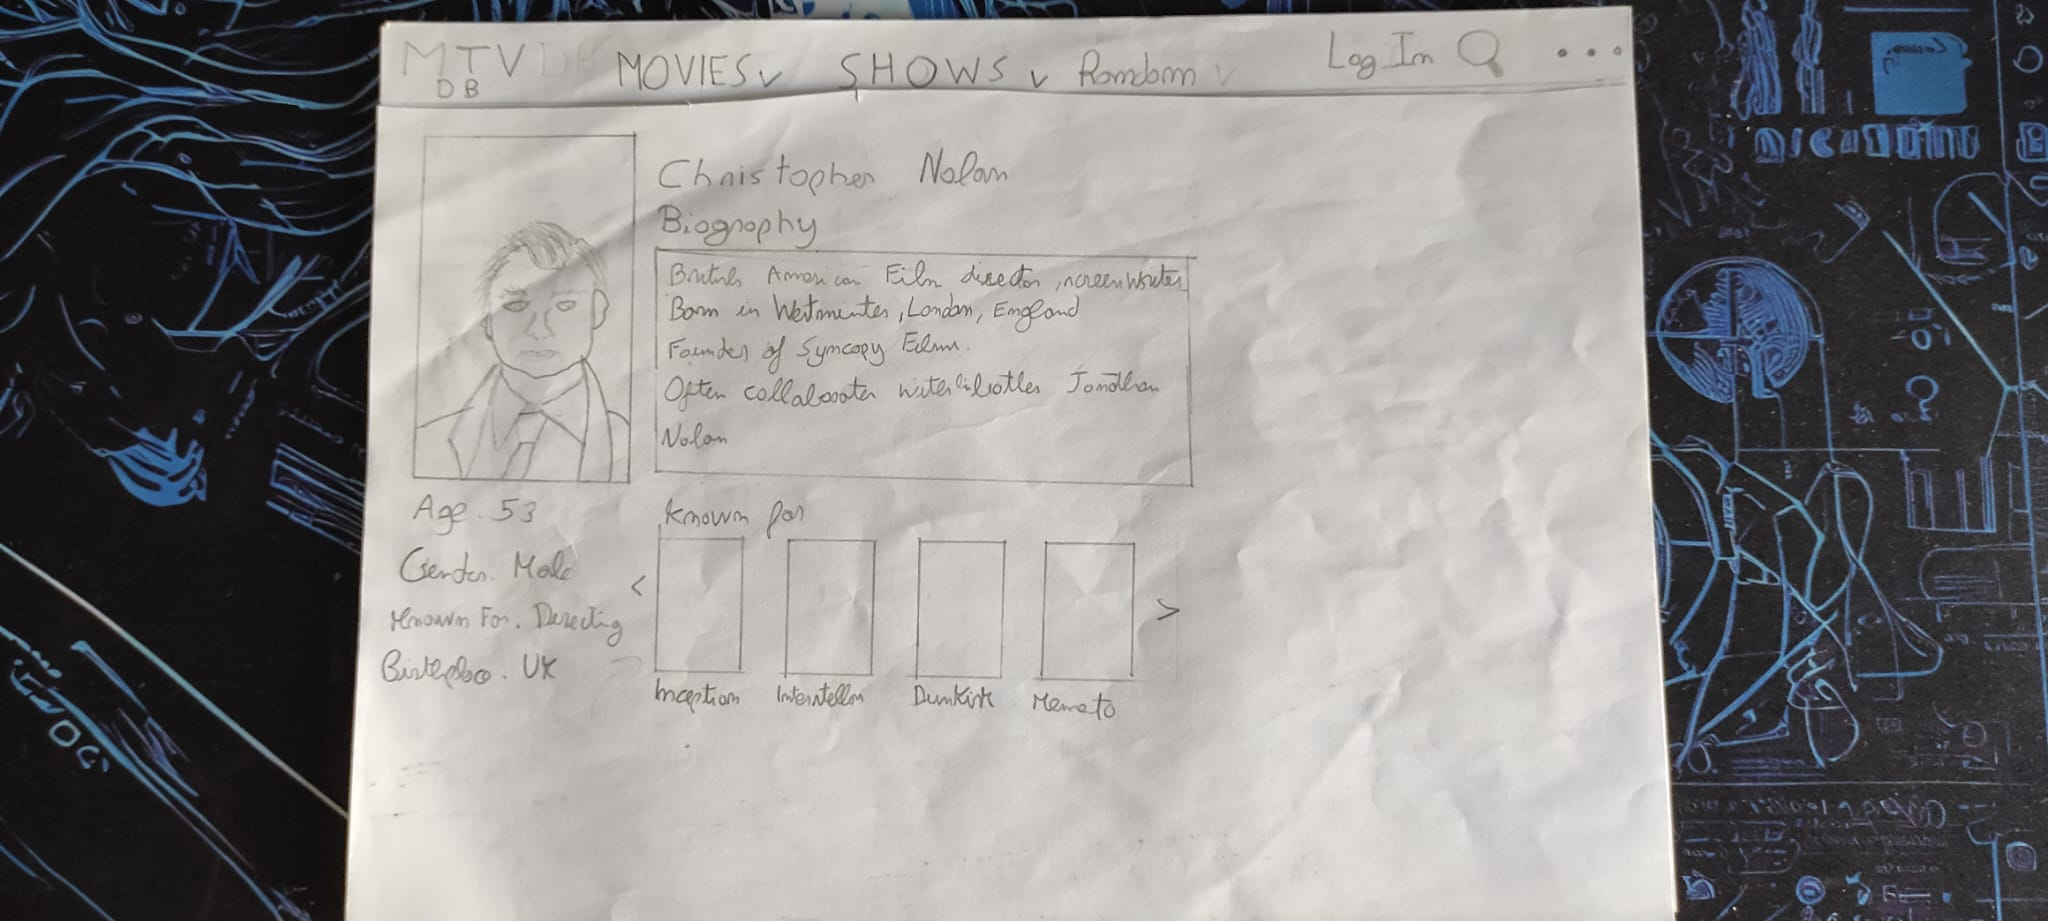 MTV DB MOVIES SHOWS Random Log In
DB
Christopher Nolan
Biography
British American Film director, screenwriter
Born in Westminter, London, England
Founder of Syncopy Films.
Often collaborates brother Jonathan
Nolan
Age. 53
Gender. Male
Known For. Directing
UK
Known for
Inception Interstellar Dunkirk Memento